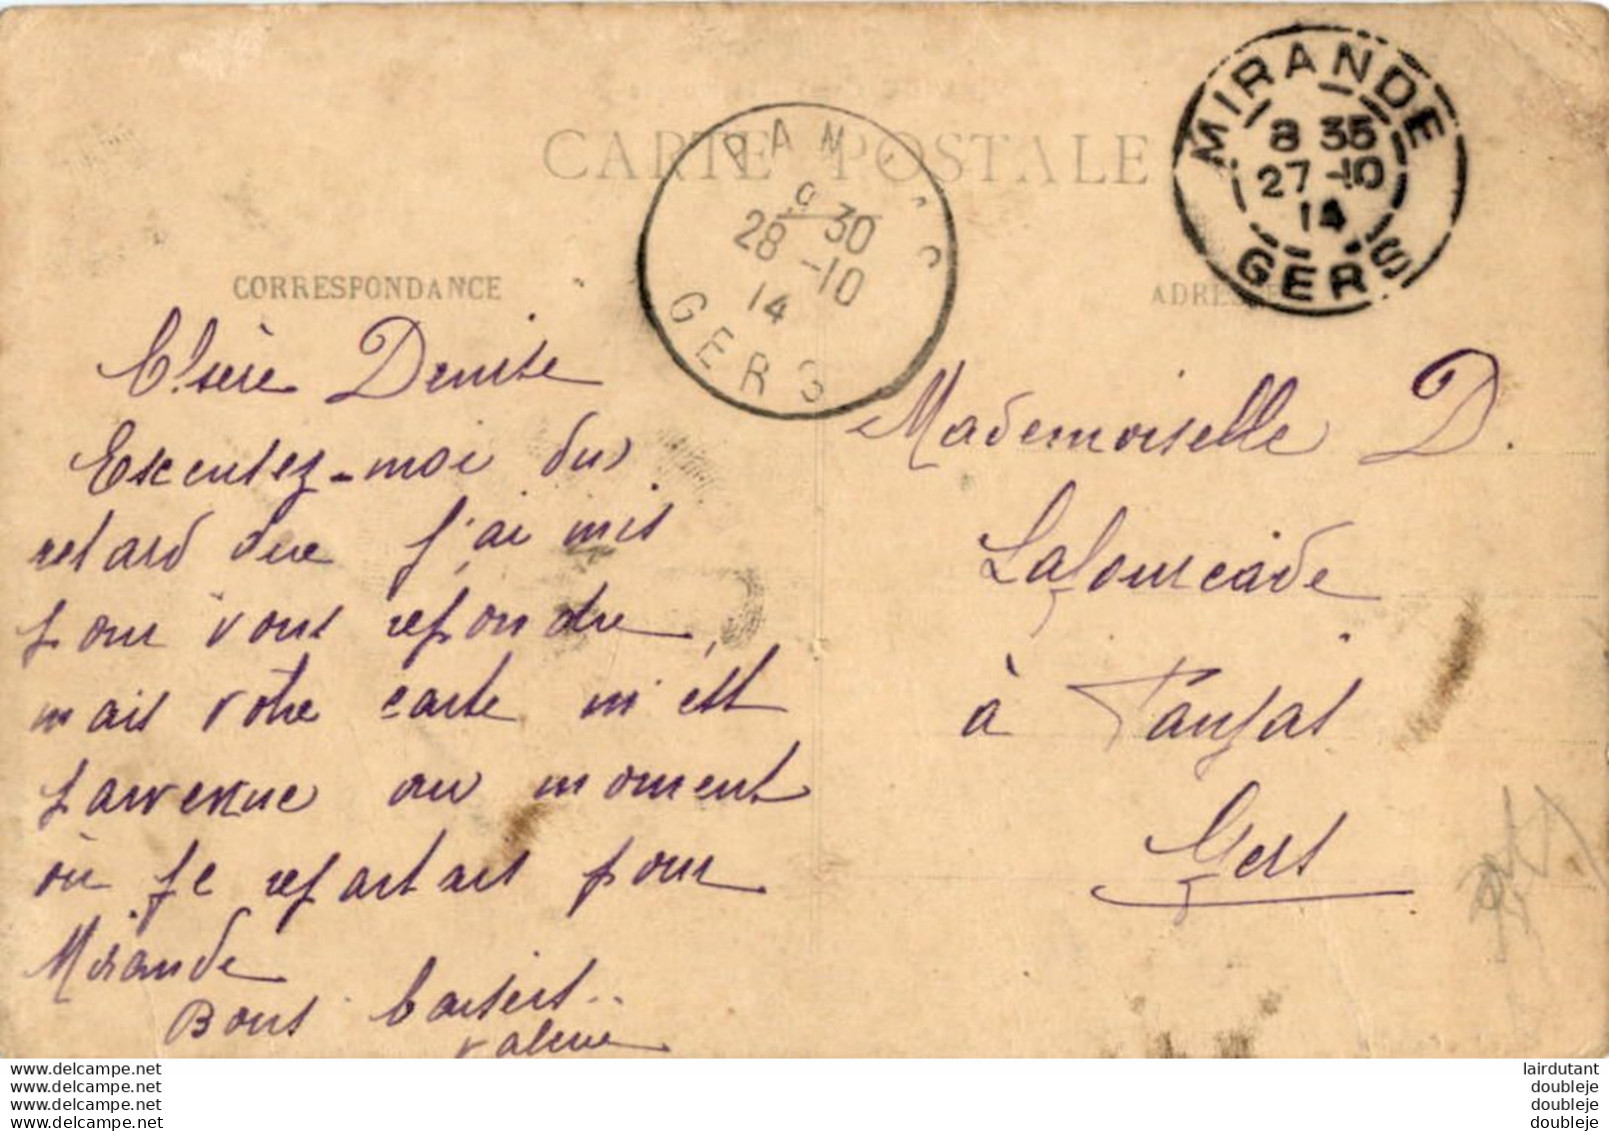 CARTE POSTALE
MIRANDE
8 35
27-10
14
GERS
PAN
9 30
28-10
14
GERS
CORRESPONDANCE
ADRESSE
Chère Denise
Excusez-moi du
retard que j'ai mis
pour vous répondre,
mais votre carte m'est
parvenue au moment
où je repartais pour
Mirande
Bons baisers..
Valérie
Mademoiselle D.
Lafourcade
à Panjas
Gers
www.delcampe.net
www.delcampe.net
www.delcampe.net
www.delcampe.net
lairdutant
doubleje
doubleje
doubleje